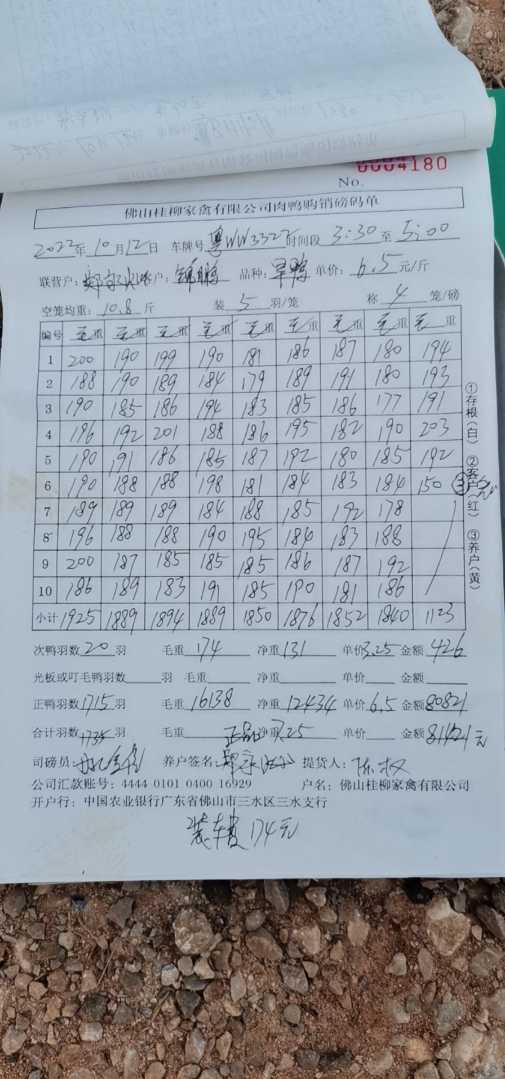 0004180
No.
佛山桂柳家禽有限公司肉鸭购销磅码单
2022年10月12日 车牌号粤WW3322时间段3:30至5:00
联营户： 客户：锦鹏 品种：旱鸭 单价：6.5元/斤
空笼均重：10.8斤 装5羽/笼 称4笼/磅
编号 毛重 毛重 毛重 毛重 毛重 毛重 毛重 毛重 毛重
1 200 190 199 190 181 186 187 180 194
2 188 190 189 184 179 189 191 180 193
3 190 185 186 194 183 185 186 177 191
4 196 192 201 188 186 195 182 190 203
5 190 191 186 185 187 192 180 185 192
6 190 188 188 198 181 184 183 184 150 ③
7 189 189 189 184 188 185 192 178
8 196 188 188 190 195 184 183 188
9 200 187 185 185 185 186 187 192
10 186 189 183 191 185 190 181 186
小计 1925 1889 1894 1889 1850 1876 1852 1840 1123
①存根(白) ②客户(红) ③养户(黄)
次鸭羽数20羽 毛重174 净重131 单价3.25 金额426
光板或叮毛鸭羽数 羽 毛重 净重 单价 金额
正鸭羽数1715羽 毛重16138 净重12434 单价6.5 金额80821
合计羽数1735羽 毛重 正品 净重7.25 单价 金额 元
司磅员： 养户签名： 提货人：陈权
公司汇款账号：4444 0101 0400 16929 户名：佛山桂柳家禽有限公司
开户行：中国农业银行广东省佛山市三水区三水支行
装车费174元